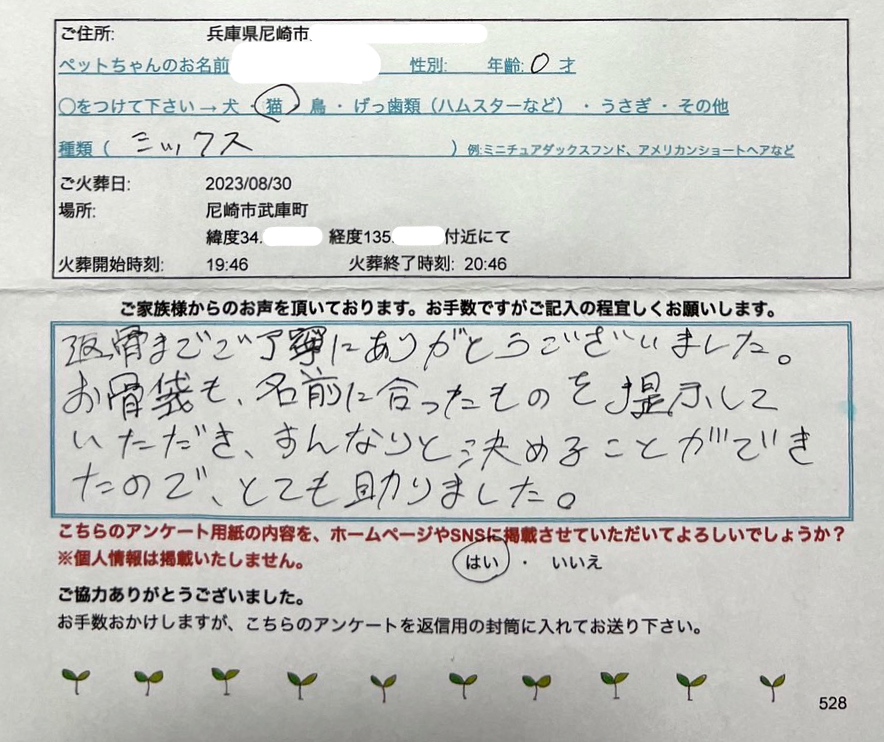 ご住所: 兵庫県尼崎市
ペットちゃんのお名前 性別: 年齢: 0 才
○をつけて下さい→ 犬 ・ 猫 ・ 鳥 ・ げっ歯類（ハムスターなど） ・ うさぎ ・ その他
種類（ ミックス ）例:ミニチュアダックスフンド、アメリカンショートヘアなど
ご火葬日: 2023/08/30
場所: 尼崎市武庫町
緯度34. 経度135. 付近にて
火葬開始時刻: 19:46 火葬終了時刻: 20:46
ご家族様からのお声を頂いております。お手数ですがご記入の程宜しくお願いします。
返骨までご丁寧にありがとうございました。
お骨袋も、名前に合ったものを提示して
いただき、すんなりと決めることができ
たので、とても助りました。
こちらのアンケート用紙の内容を、ホームページやSNSに掲載させていただいてよろしいでしょうか？
※個人情報は掲載いたしません。 はい ・ いいえ
ご協力ありがとうございました。
お手数おかけしますが、こちらのアンケートを返信用の封筒に入れてお送り下さい。
528